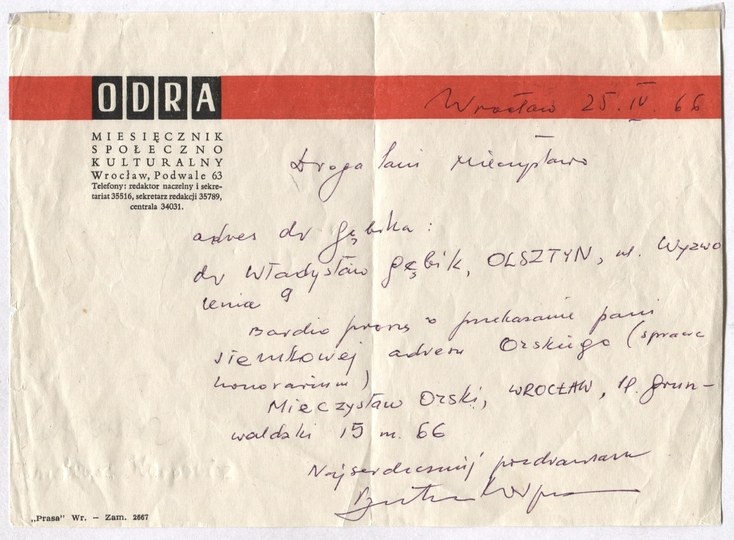 ODRA
MIESIĘCZNIK
SPOŁECZNO
KULTURALNY
Wrocław, Podwale 63
Telefony: redaktor naczelny i sekre-
tariat 35516, sekretarz redakcji 35789,
centrala 34031.
Wrocław 25.IV.66
Droga Pani Mieczysławo
adres dr Gębika:
dr Władysław Gębik, OLSZTYN, ul. Wyzwo
lenia 9
Bardzo proszę o przekazanie pani
Ziemkowej adresu Orskiego (sprawa
honorarium)
Mieczysław Orski, WROCŁAW, Pl. Grun-
waldzki 15 m. 66
Najserdeczniej pozdrawiam
„Prasa" Wr. – Zam. 2667